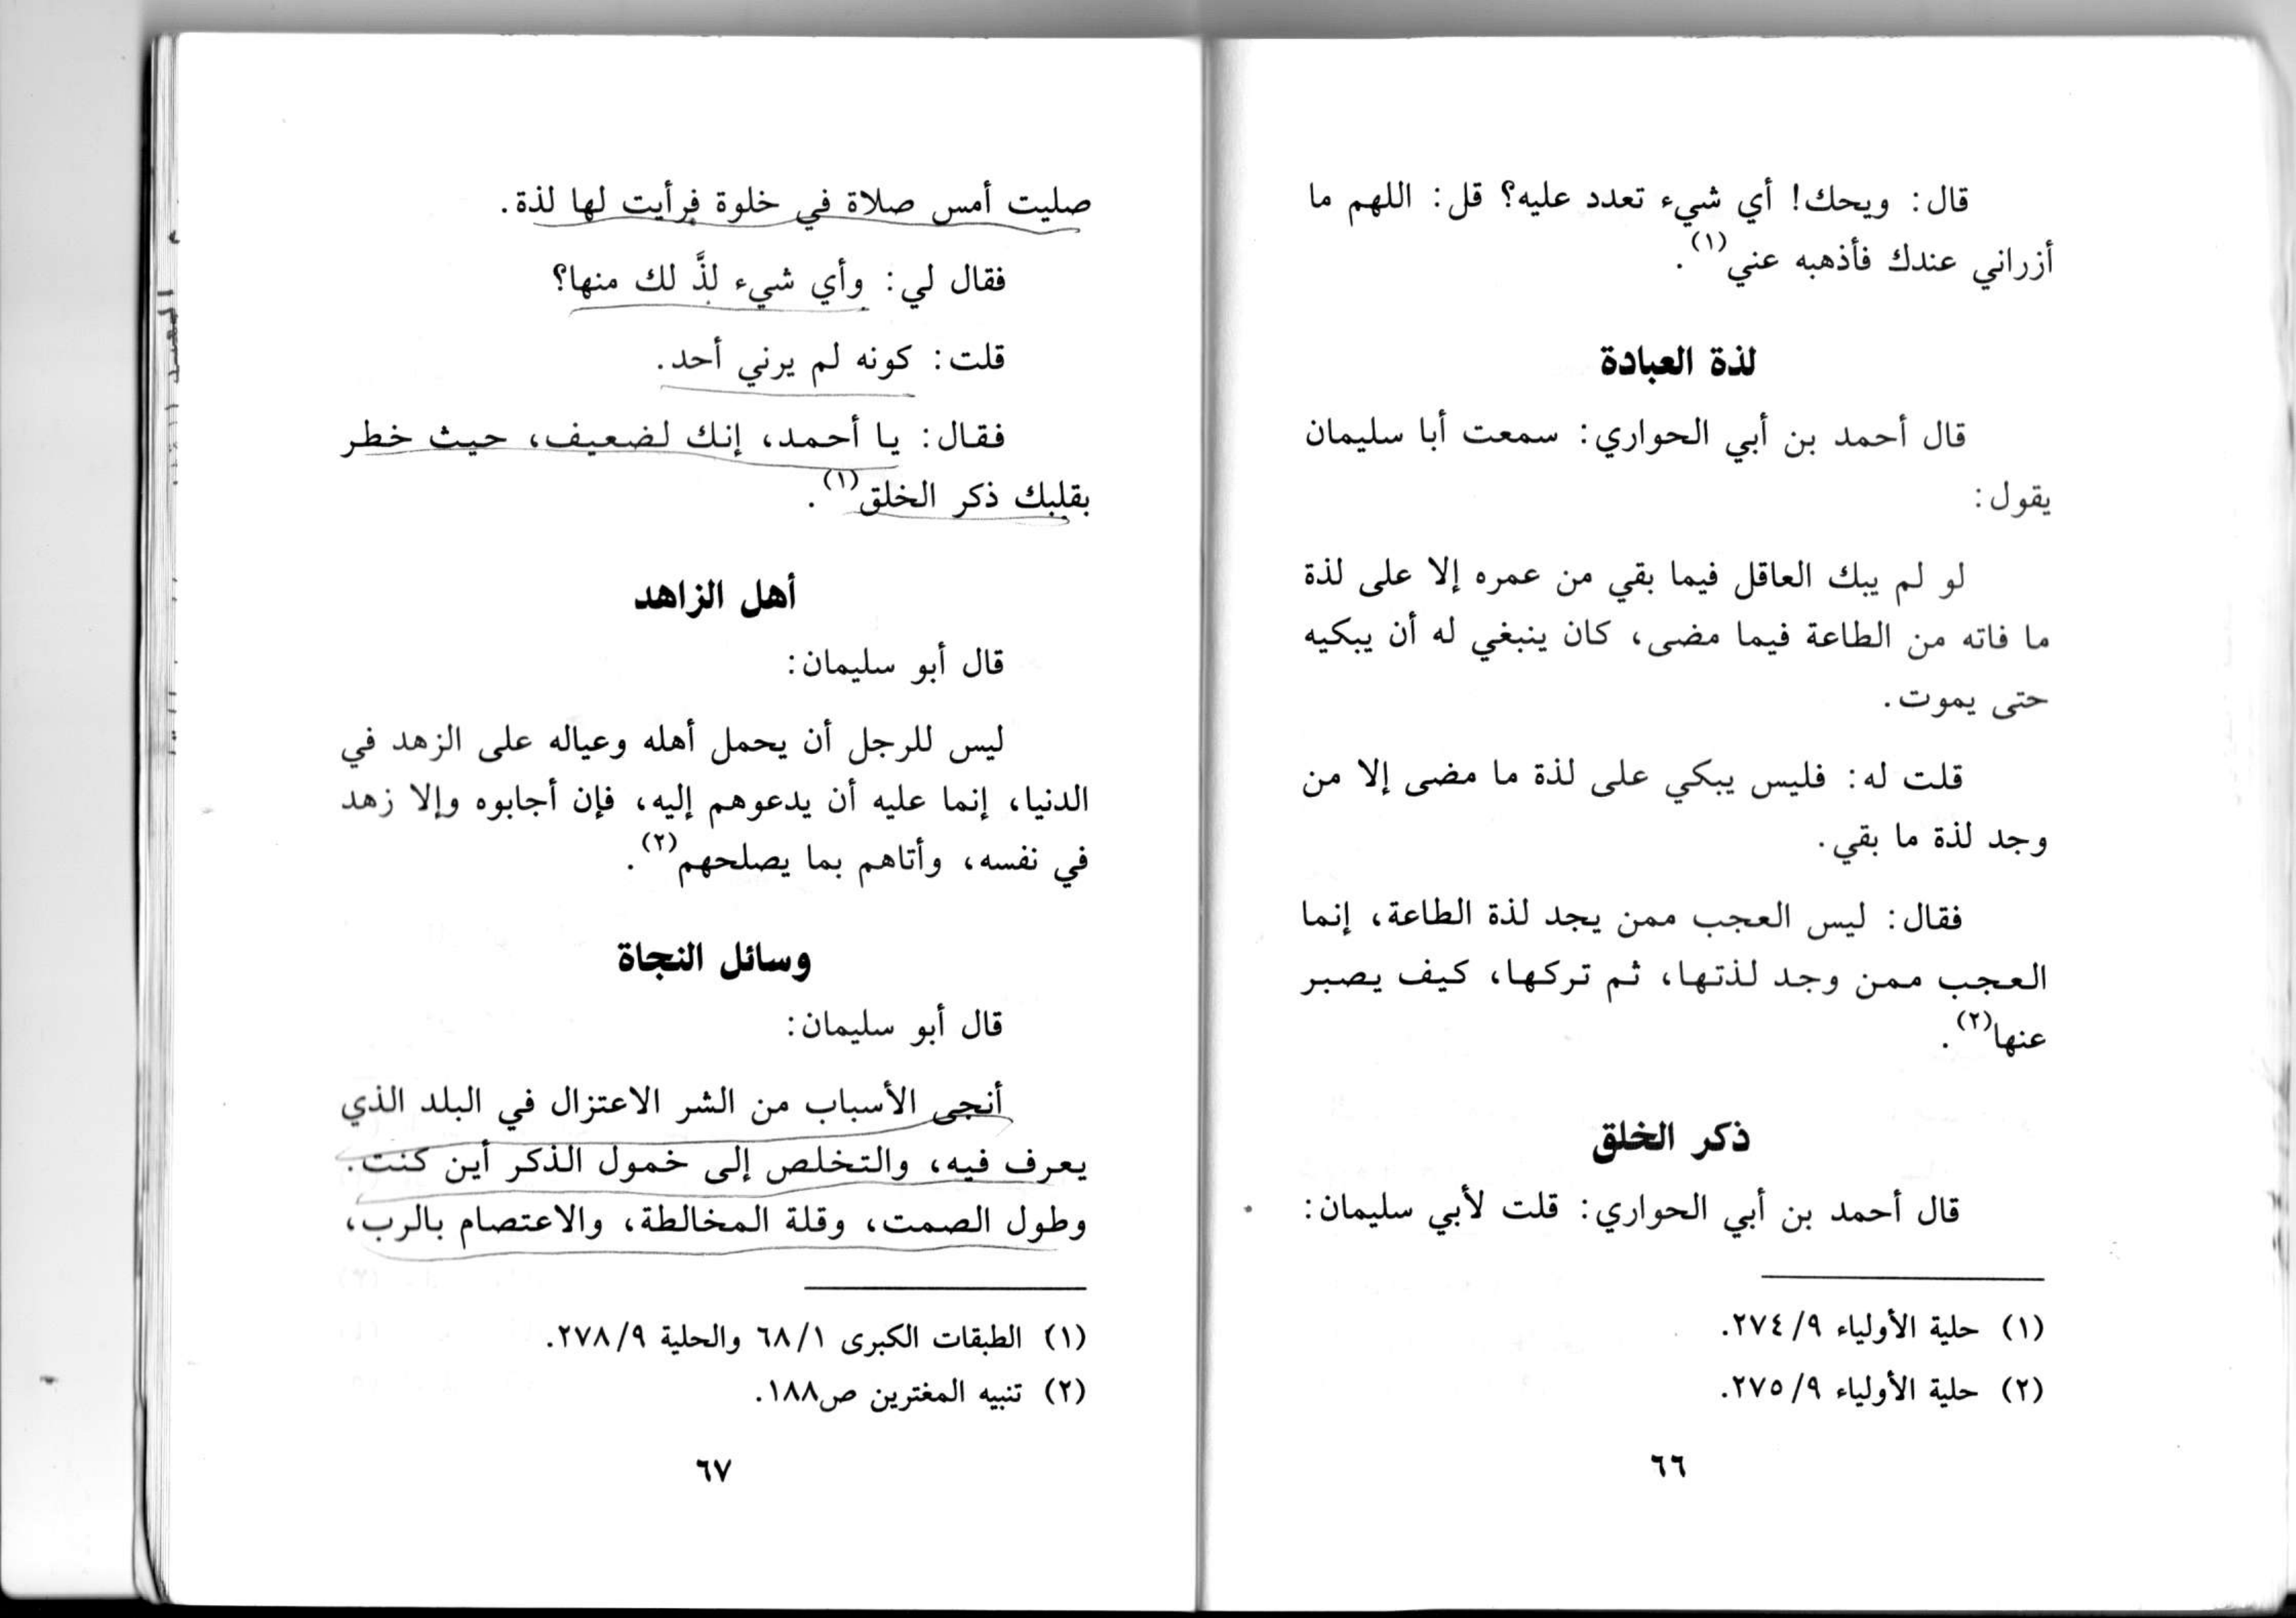 قال: ويحك! أي شيء تعدد عليه؟ قل: اللهم ما
أزراني عندك فأذهبه عني(١).
لذة العبادة
قال أحمد بن أبي الحواري: سمعت أبا سليمان
يقول:
لو لم يبك العاقل فيما بقي من عمره إلا على لذة
ما فاته من الطاعة فيما مضى، كان ينبغي له أن يبكيه
حتى يموت.
قلت له: فليس يبكي على لذة ما مضى إلا من
وجد لذة ما بقي.
فقال: ليس العجب ممن يجد لذة الطاعة، إنما
العجب ممن وجد لذتها، ثم تركها، كيف يصبر
عنها(٢).
ذكر الخلق
قال أحمد بن أبي الحواري: قلت لأبي سليمان:
(١) حلية الأولياء ٢٧٤/٩.
(٢) حلية الأولياء ٢٧٥/٩.
٦٦
صليت أمس صلاة في خلوة فرأيت لها لذة.
فقال لي: وأي شيء لذَّ لك منها؟
قلت: كونه لم يرني أحد.
فقال: يا أحمد، إنك لضعيف، حيث خطر
بقلبك ذكر الخلق(١).
أهل الزاهد
قال أبو سليمان:
ليس للرجل أن يحمل أهله وعياله على الزهد في
الدنيا، إنما عليه أن يدعوهم إليه، فإن أجابوه وإلا زهد
في نفسه، وأتاهم بما يصلحهم(٢).
وسائل النجاة
قال أبو سليمان:
أنجى الأسباب من الشر الاعتزال في البلد الذي
يعرف فيه، والتخلص إلى خمول الذكر أين كنت.
وطول الصمت، وقلة المخالطة، والاعتصام بالرب،
(١) الطبقات الكبرى ٦٨/١ والحلية ٢٧٨/٩.
(٢) تنبيه المغترين ص١٨٨.
٦٧